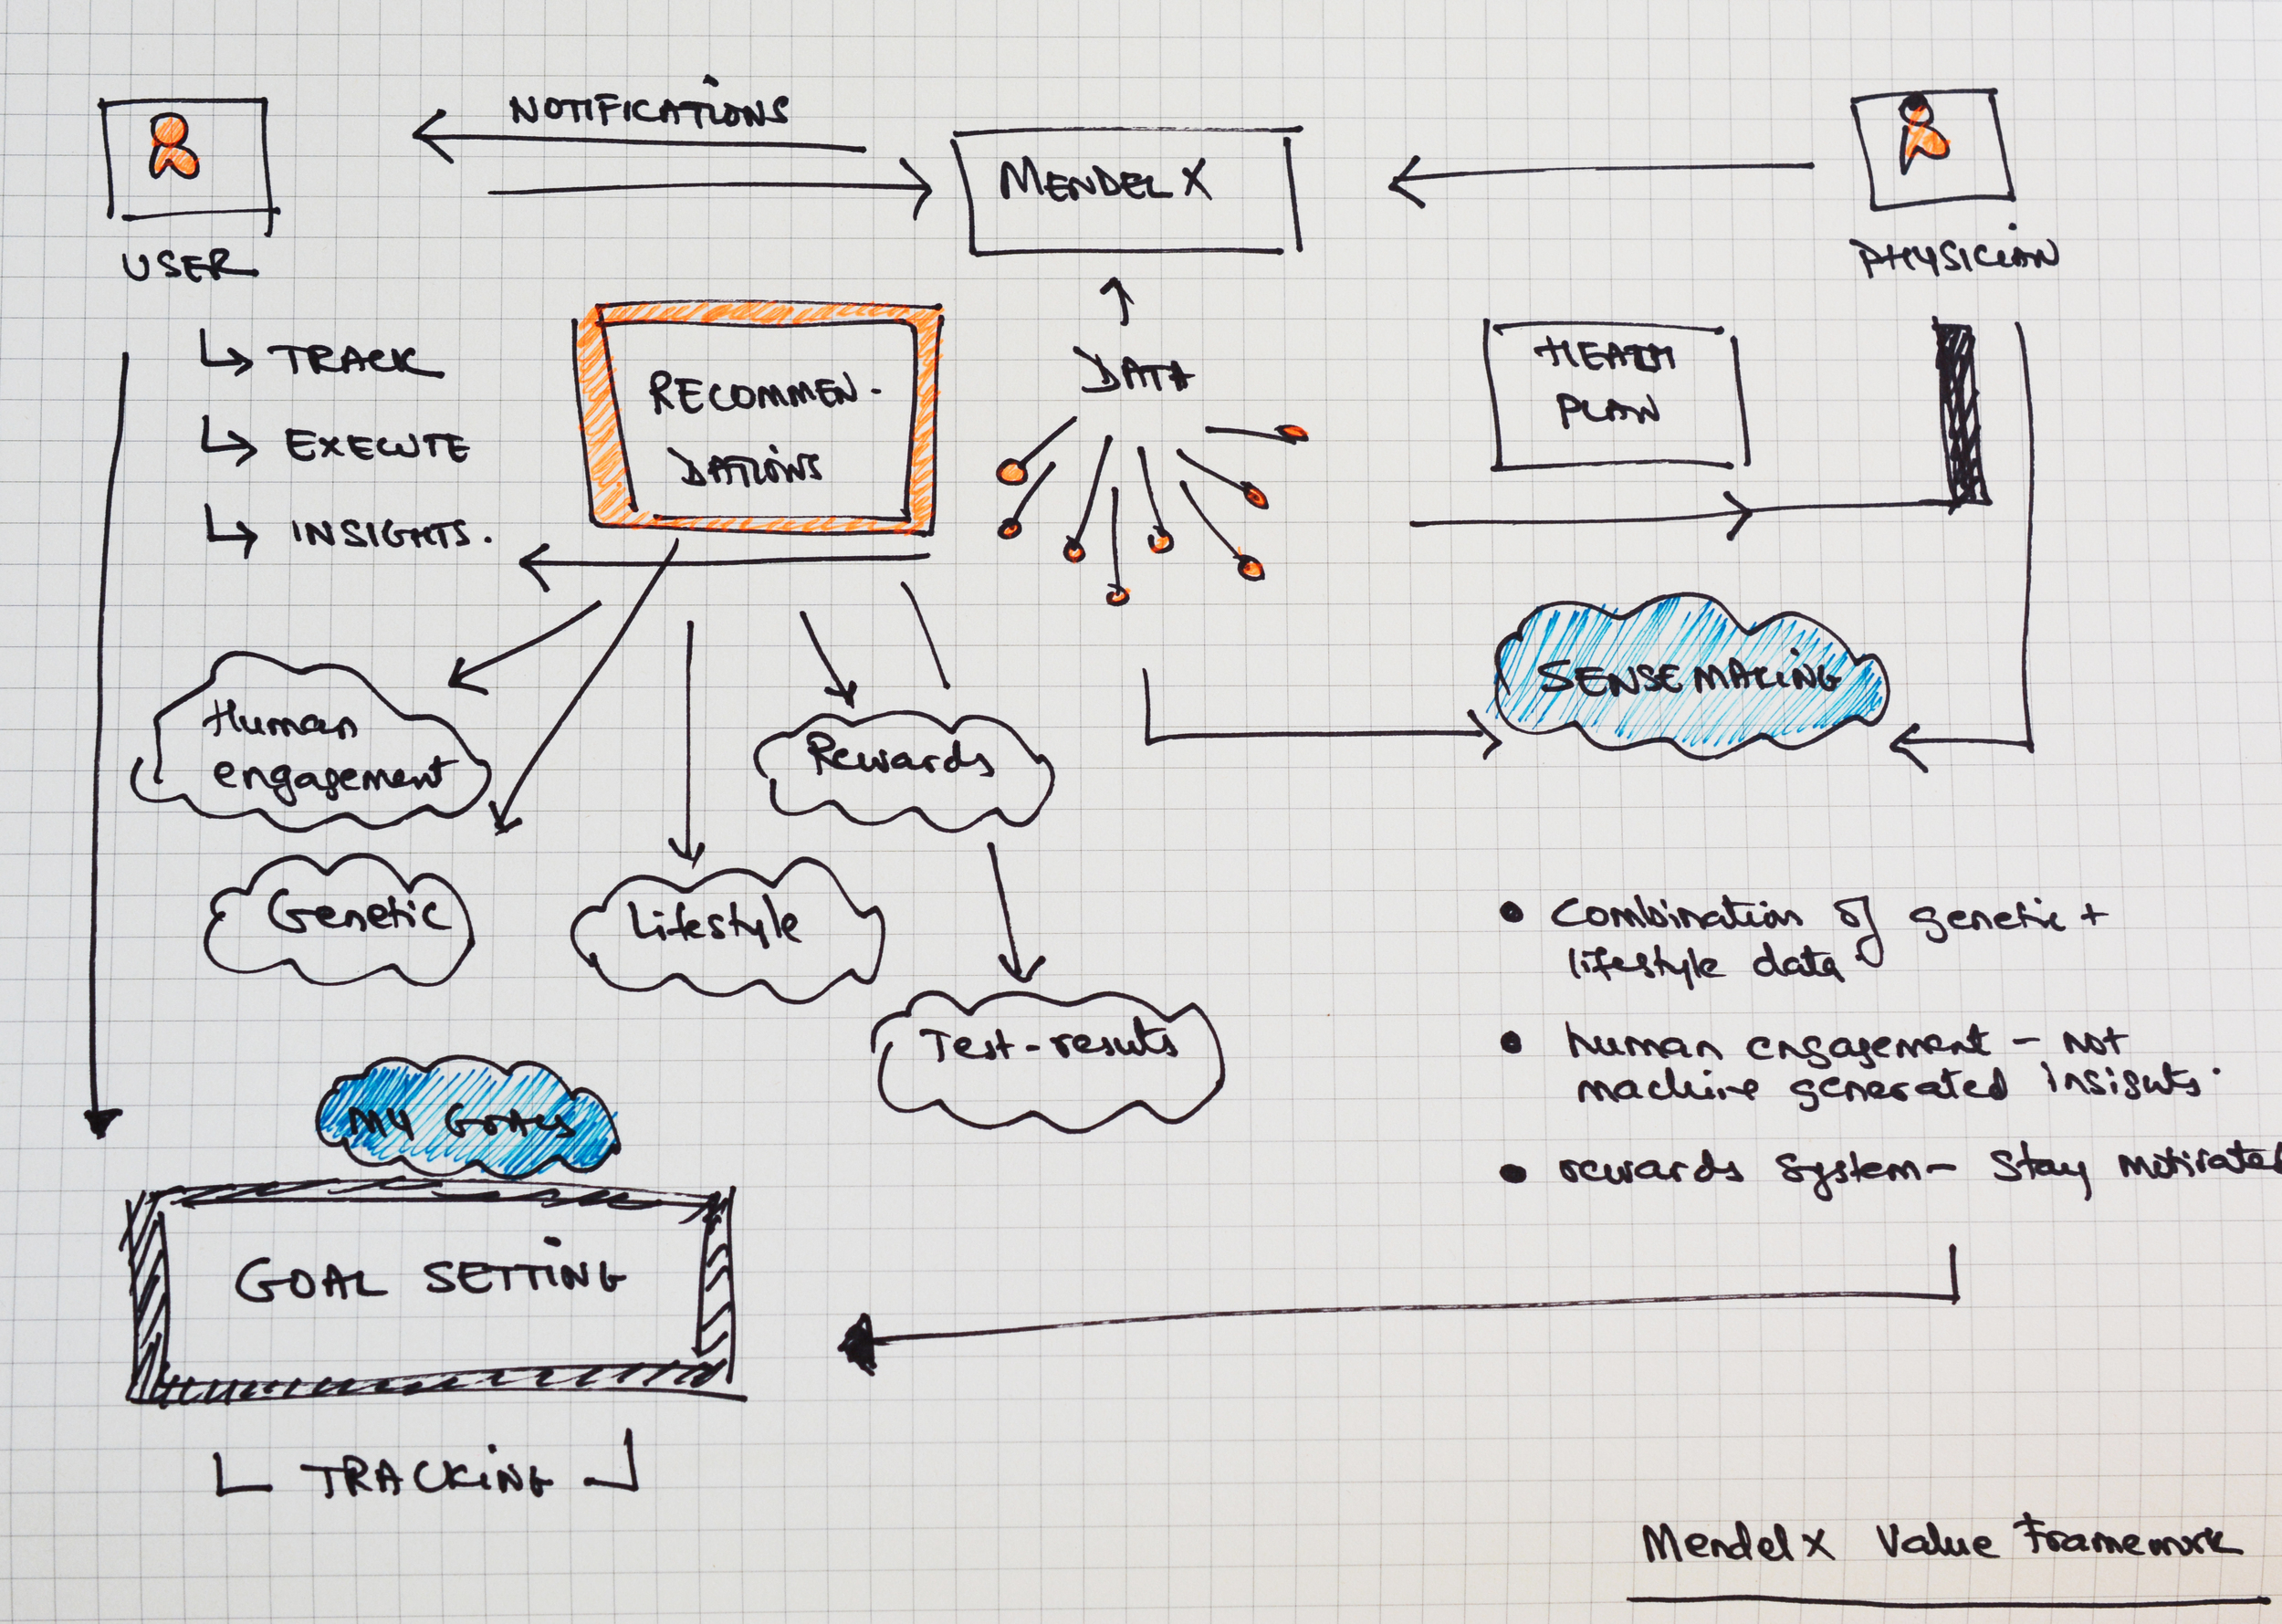 NOTIFICATIONS
MENDEL X
USER
PHYSICIAN
TRACK
EXECUTE
INSIGHTS.
RECOMMEN-
DATIONS
DATA
HEATH
PLAN
SENSEMAKING
Human
engagement
Rewards
Genetic
Lifestyle
Test-results
• Combination of genetic +
lifestyle data
• human engagement - not
machine generated insights.
• rewards system - Stay motivated
MY GOALS
GOAL SETTING
TRACKING
Mendel X Value Framework